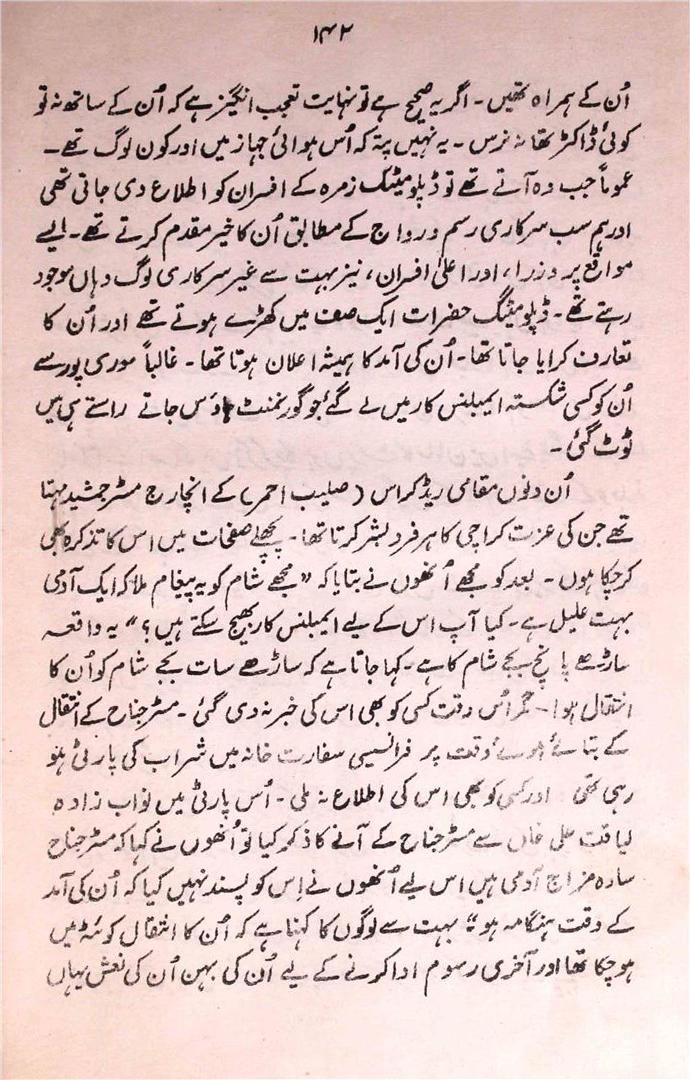 ۱۴۲
اُن کے ہمراہ تھیں۔ اگر یہ صحیح ہے تو نہایت تعجب انگیز ہے کہ اُن کے ساتھ نہ تو
کوئی ڈاکٹر تھا نہ نرس۔ یہ نہیں پتہ کہ اُس ہوائی جہاز میں اور کون لوگ تھے۔
عموماً جب وہ آتے تھے تو ڈپلومیٹک زمرہ کے افسران کو اطلاع دی جاتی تھی
اور ہم سب سرکاری رسم و رواج کے مطابق اُن کا خیر مقدم کرتے تھے۔ ایسے
مواقع پر وزراء، اور اعلیٰ افسران، نیز بہت سے غیر سرکاری لوگ وہاں موجود
رہتے تھے۔ ڈپلومیٹک حضرات ایک صف میں کھڑے ہوتے تھے اور اُن کا
تعارف کرایا جاتا تھا۔ اُن کی آمد کا ہمیشہ اعلان ہوتا تھا۔ غالباً موری پور سے
اُن کو کسی شکستہ ایمبلنس کار میں لے گئے جو گورنمنٹ ہاؤس جاتے راستے ہی میں
ٹوٹ گئی۔
اُن دنوں مقامی ریڈ کراس (صلیب احمر) کے انچارج مسٹر جمشید مہتا
تھے جن کی عزت کراچی کا ہر فرد بشر کرتا تھا۔ پچھلے صفحات میں اس کا تذکرہ بھی
کر چکا ہوں۔ بعد کو مجھے اُنھوں نے بتایا کہ ”مجھے شام کو یہ پیغام ملا کہ ایک آدمی
بہت علیل ہے۔ کیا آپ اس کے لیے ایمبلنس کار بھیج سکتے ہیں؟“ یہ واقعہ
ساڑھے پانچ بجے شام کا ہے۔ کہا جاتا ہے کہ ساڑھے سات بجے شام کو اُن کا
انتقال ہوا۔ مگر اُس وقت کسی کو بھی اس کی خبر نہ دی گئی۔ مسٹر جناح کے انتقال
کے بتائے ہوئے وقت پر فرانسیسی سفارت خانہ میں شراب کی پارٹی ہو
رہی تھی اور کسی کو بھی اس کی اطلاع نہ ملی۔ اُس پارٹی میں نواب زادہ
لیاقت علی خاں سے مسٹر جناح کے آنے کا ذکر کیا تو اُنھوں نے کہا کہ مسٹر جناح
سادہ مزاج آدمی ہیں اس لیے اُنھوں نے اِس کو پسند نہیں کیا کہ اُن کی آمد
کے وقت ہنگامہ ہو“ بہت سے لوگوں کا کہنا ہے کہ اُن کا انتقال کوئٹہ میں
ہو چکا تھا اور آخری رسوم ادا کرنے کے لیے اُن کی بہن اُن کی نعش یہاں